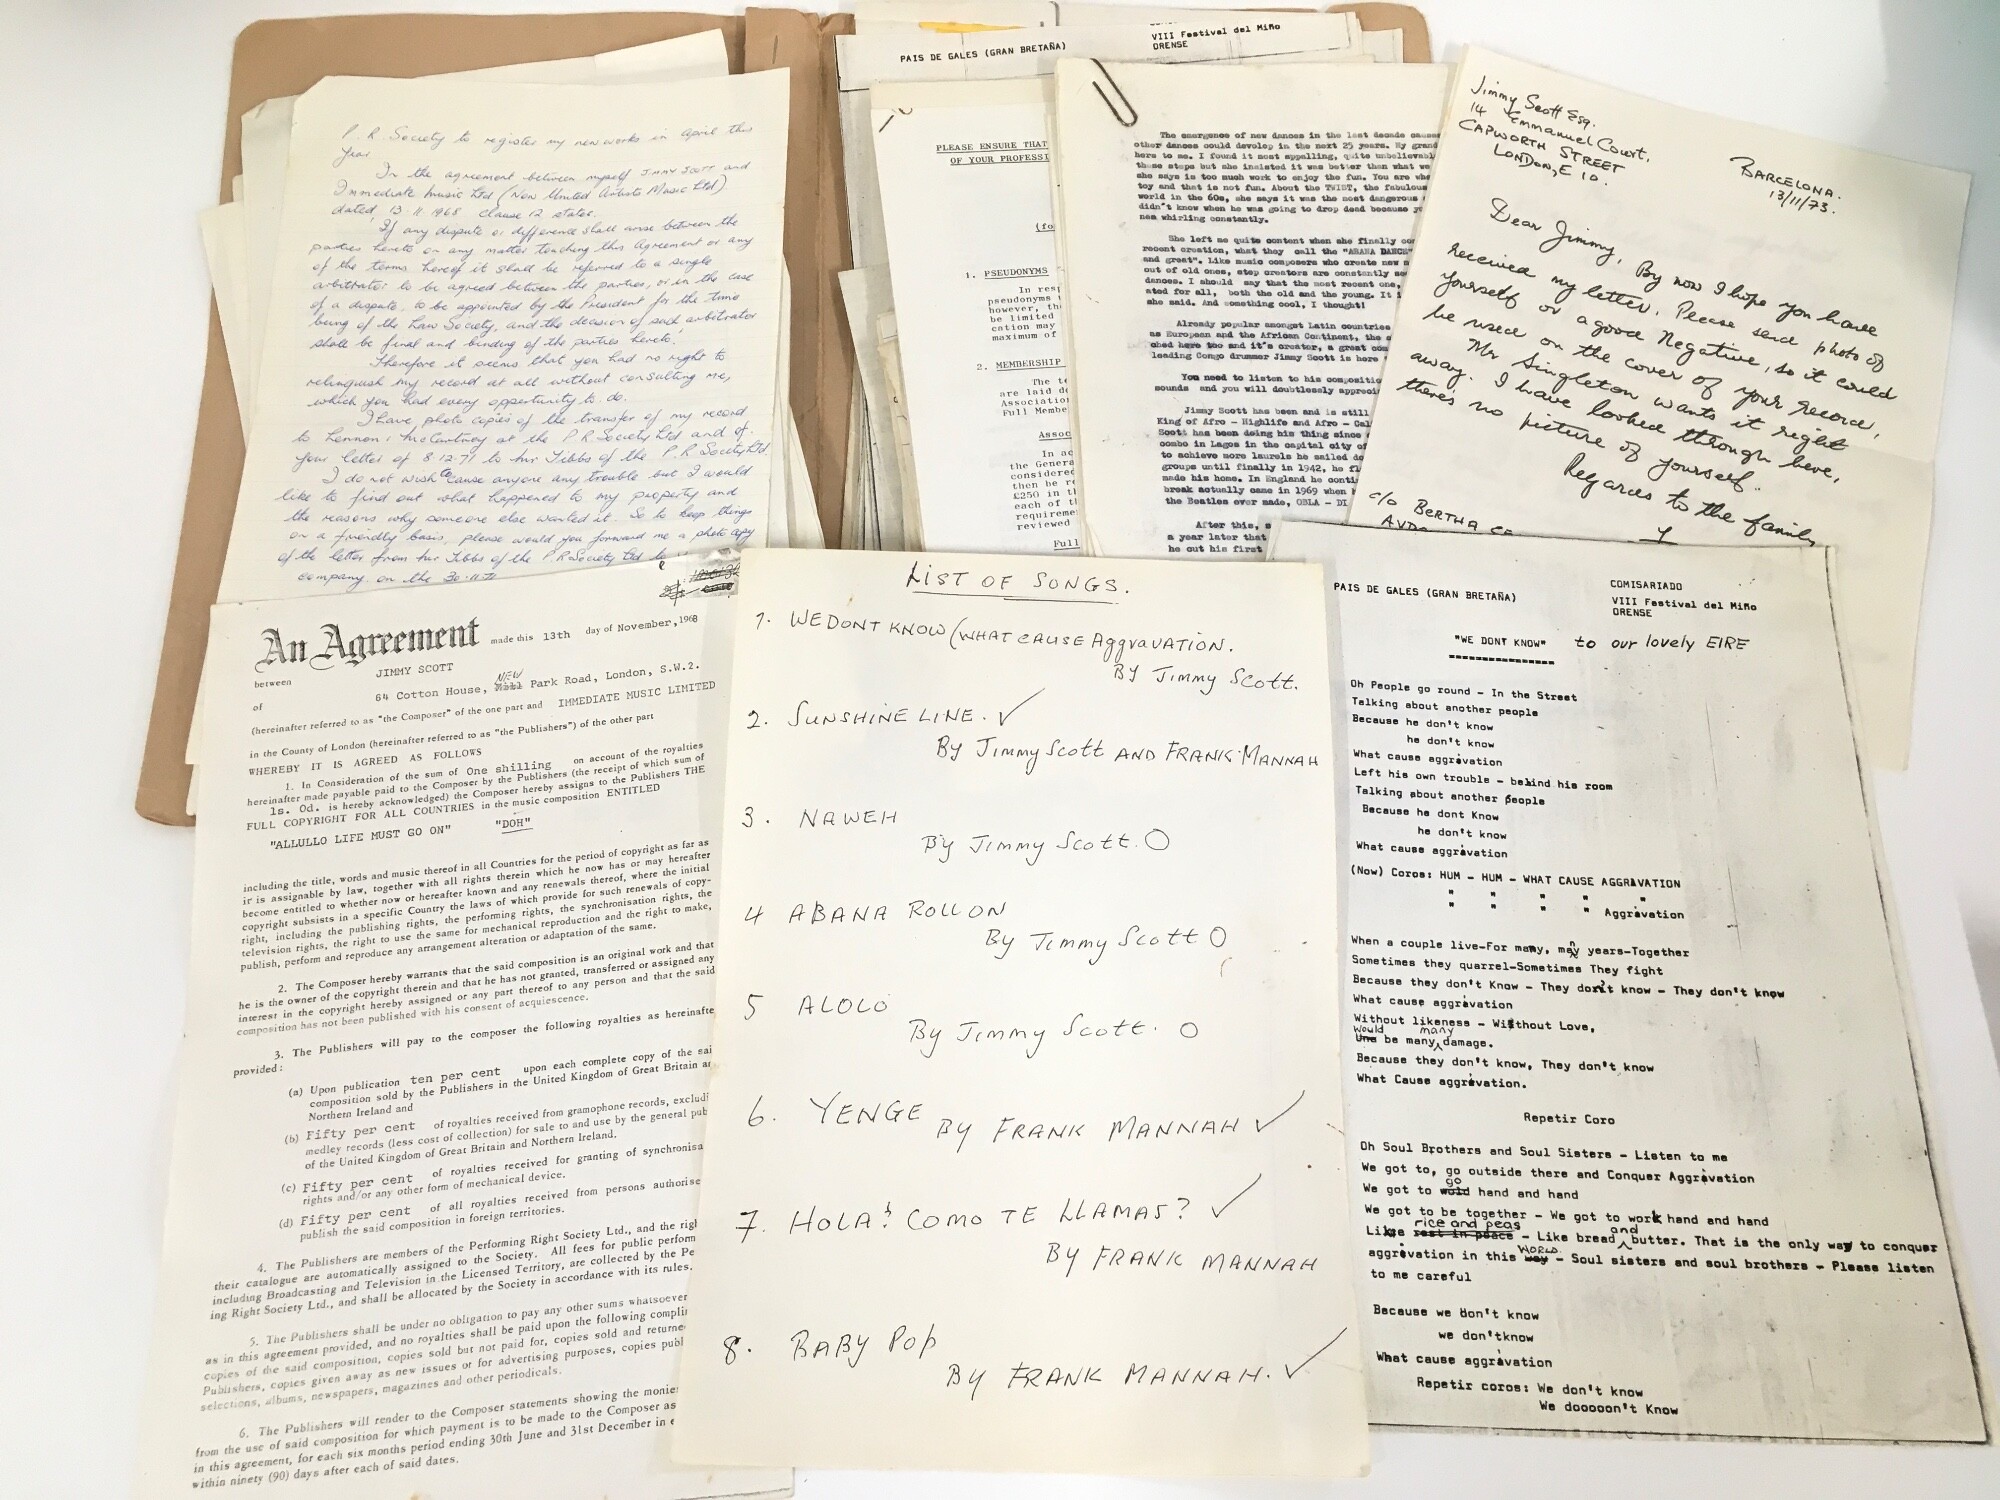 P. R. Society to register my new works in April this
Year.
In the agreement between myself JIMMY SCOTT and
Immediate Music Ltd (New United Artists Music Ltd)
dated, 13.11.1968 clause 12 states.
'If any dispute or difference shall arise between the
parties hereto on any matter touching this Agreement or any
of the terms hereof it shall be referred to a single
arbitrator to be agreed between the parties, or in the case
of a dispute, to be appointed by the President for the time
being of the Law Society, and the decision of such arbitrator
shall be final and binding of the parties hereto.'
Therefore it seems that you had no right to
relinquish my record at all without consulting me,
which you had every opportunity to do.
I have photo copies of the transfer of my record
to Lennon & McCartney at the P.R Society Ltd and of
your letter of 8.12.71 to Mr Tibbs of the P.R Society Ltd.
I do not wish to cause anyone any trouble but I would
like to find out what happened to my property and
the reasons why someone else wanted it. So to keep things
on a friendly basis, please would you forward me a photo copy
of the letter from Mr Tibbs of the P.R Society Ltd to
company on the 30.11.71
PAIS DE GALES (GRAN BRETAÑA)
VIII Festival del Miño
ORENSE
PLEASE ENSURE THAT
OF YOUR PROFESSI
(fo
1. PSEUDONYMS
In resp
pseudonyms
however, th
be limited
cation may
maximum of
2. MEMBERSHIP
The te
are laid do
Association
Full Membe
Assoc
In ac
the Genera
considered
then be re
£250 in th
each of th
requireme
reviewed
Full
The emergence of new dances in the last decade cause
other dances could develop in the next 25 years. My grand
here to me. I found it most appalling, quite unbelievabl
these steps but she insisted it was better than what we
she says is too much work to enjoy the fun. You are whe
toy and that is not fun. About the TWIST, the fabulous
world in the 60s, she says it was the most dangerous
didn't know when he was going to drop dead because y
nes whirling constantly.
She left me quite content when she finally con
recent creation, what they call the "ABANA DANCE"
and great". Like music composers who create new m
out of old ones, step creators are constantly see
dances. I should say that the most recent one,
ated for all, both the old and the young. It i
she said. And something cool, I thought!
Already popular amongst Latin countries
as European and the African Continent, the a
ched here too and it's creator, a great com
leading Congo drummer Jimmy Scott is here
You need to listen to his compositio
sounds and you will doubtlessly appreci
Jimmy Scott has been and is still
King of Afro - Highlife and Afro - Cal
Scott has been doing his thing since
combo in Lagos in the capital city of
to achieve more laurels he sailed do
groups until finally in 1942, he fl
made his home. In England he conti
break actually came in 1969 when
the Beatles ever made, OBLA - DI
After this, s
a year later that
he cut his first
Jimmy Scott Esq.
14 Emmanuel Court,
CAPWORTH STREET
LONDON, E 10.
BARCELONA.
13/11/73.
Dear Jimmy, By now I hope you have
received my letter. Please send photo of
yourself or a good Negative, so it could
be used on the cover of your record.
Mr Singleton wants it right
away. I have looked through here,
there's no picture of yourself.
Regards to the family
c/o BERTHA
An Agreement made this 13th day of November, 1968
between JIMMY SCOTT
of 64 Cotton House, NEW Park Road, London, S.W.2.
(hereinafter referred to as "the Composer" of the one part and IMMEDIATE MUSIC LIMITED
in the County of London (hereinafter referred to as "the Publishers") of the other part
WHEREBY IT IS AGREED AS FOLLOWS
1. In Consideration of the sum of One shilling on account of the royalties
hereinafter made payable paid to the Composer by the Publishers (the receipt of which sum of
1s. 0d. is hereby acknowledged) the Composer hereby assigns to the Publishers THE
FULL COPYRIGHT FOR ALL COUNTRIES in the music composition ENTITLED
"ALLULLO LIFE MUST GO ON" "DOH"
including the title, words and music thereof in all Countries for the period of copyright as far as
it is assignable by law, together with all rights therein which he now has or may hereafter
become entitled to whether now or hereafter known and any renewals thereof, where the initial
copyright subsists in a specific Country the laws of which provide for such renewals of copy-
right, including the publishing rights, the performing rights, the synchronisation rights, the
television rights, the right to use the same for mechanical reproduction and the right to make,
publish, perform and reproduce any arrangement alteration or adaptation of the same.
2. The Composer hereby warrants that the said composition is an original work and that
he is the owner of the copyright therein and that he has not granted, transferred or assigned any
interest in the copyright hereby assigned or any part thereof to any person and that the said
composition has not been published with his consent of acquiescence.
3. The Publishers will pay to the composer the following royalties as hereinafte
provided:
(a) Upon publication ten per cent upon each complete copy of the sai
composition sold by the Publishers in the United Kingdom of Great Britain an
Northern Ireland and
(b) Fifty per cent of royalties received from gramophone records, excludi
medley records (less cost of collection) for sale to and use by the general pub
of the United Kingdom of Great Britain and Northern Ireland.
(c) Fifty per cent of royalties received for granting of synchronisa
rights and/or any other form of mechanical device.
(d) Fifty per cent of all royalties received from persons authorise
publish the said composition in foreign territories.
4. The Publishers are members of the Performing Right Society Ltd., and the righ
their catalogue are automatically assigned to the Society. All fees for public perform
including Broadcasting and Television in the Licensed Territory, are collected by the Pe
ing Right Society Ltd., and shall be allocated by the Society in accordance with its rules.
5. The Publishers shall be under no obligation to pay any other sums whatsoever
as in this agreement provided, and no royalties shall be paid upon the following compli
copies of the said composition, copies sold but not paid for, copies sold and returne
Publishers, copies given away as new issues or for advertising purposes, copies publ
selections, albums, newspapers, magazines and other periodicals.
6. The Publishers will render to the Composer statements showing the monie
from the use of said composition for which payment is to be made to the Composer as
in this agreement, for each six months period ending 30th June and 31st December in e
within ninety (90) days after each of said dates.
LIST OF SONGS.
1. WE DONT KNOW (WHAT CAUSE AggravATION.
By Jimmy Scott.
2. SUNSHINE LINE. ✓
By Jimmy Scott AND FRANK MANNAH
3. NAWEH
By Jimmy Scott. O
4 ABANA ROLL ON
By Jimmy Scott O
5 ALOLO
By Jimmy Scott. O
6. YENGE By FRANK MANNAH ✓
7. HOLA! COMO TE LLAMAS? ✓
By FRANK MANNAH
8. BABY POP
By FRANK MANNAH. ✓
PAIS DE GALES (GRAN BRETAÑA)
COMISARIADO
VIII Festival del Miño
ORENSE
"WE DONT KNOW" to our lovely EIRE
Oh People go round - In the Street
Talking about another people
Because he don't know
he don't know
What cause aggravation
Left his own trouble - behind his room
Talking about another people
Because he dont Know
he don't know
What cause aggravation
(Now) Coros: HUM - HUM - WHAT CAUSE AGGRAVATION
" " " " "
" " " " Aggravation
When a couple live-For many, many years-Together
Sometimes they quarrel-Sometimes They fight
Because they don't Know - They don't know - They don't know
What cause aggravation
Without likeness - Without Love,
would many
Une be many damage.
Because they don't know, They don't know
What Cause aggravation.
Repetir Coro
Oh Soul Brothers and Soul Sisters - Listen to me
We got to, go outside there and Conquer Aggravation
go
We got to wold hand and hand
We got to be together - We got to work hand and hand
rice and peas and
Like rest in peace - Like bread butter. That is the only way to conquer
WORLD
aggravation in this way - Soul sisters and soul brothers - Please listen
to me careful
Because we don't know
we don'tknow
What cause aggravation
Repetir coros: We don't know
We dooooon't Know